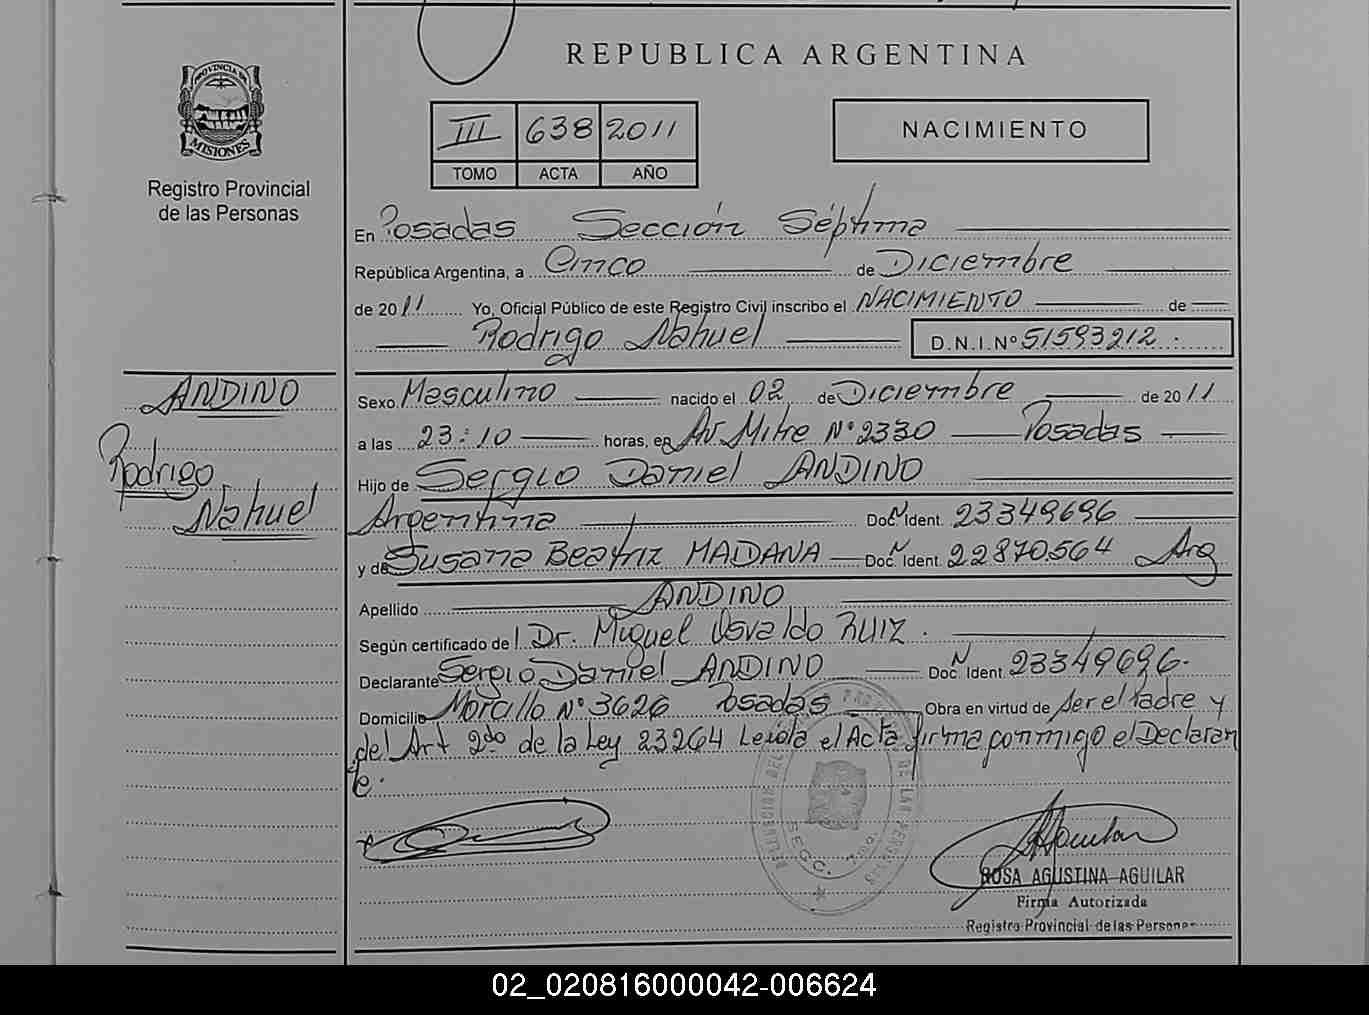 REPUBLICA ARGENTINA
PROVINCIA DE
MISIONES
Registro Provincial
de las Personas
III 638 2011
TOMO ACTA AÑO
NACIMIENTO
En Posadas Sección Séptima
República Argentina, a Cinco de Diciembre
de 2011 Yo, Oficial Público de este Registro Civil inscribo el NACIMIENTO de
Rodrigo Nahuel D.N.I.Nº 51593212
ANDINO
Rodrigo
Nahuel
Sexo Masculino nacido el 02 de Diciembre de 2011
a las 23:10 horas, en Av. Mitre Nº 2330 Posadas
Hijo de Sergio Daniel ANDINO
Argentina Doc. Ident. 23349696
y de Susana Beatriz MADANA Doc. Ident. 22870564 Arg
Apellido ANDINO
Según certificado del Dr. Miguel Osvaldo RUIZ.
Declarante Sergio Daniel ANDINO Doc. Ident. 23349696.
Domicilio Morcillo Nº 3626 Posadas Obra en virtud de ser el Padre y
del Art 2do de la Ley 23264 Leida el Acta firma conmigo el Declaran
te.
SECC. 7ma.
ROSA AGUSTINA AGUILAR
Firma Autorizada
Registro Provincial de las Personas
02_020816000042-006624